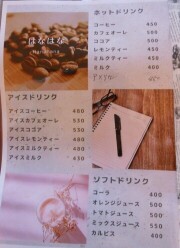 はなはな
ホットドリンク
コーヒー 450
カフェオーレ 500
ココア 500
レモンティー 450
ミルクティー 450
ミルク 400
アイスドリンク
アイスコーヒー 400
アイスカフェオーレ 500
アイスココア 500
アイスレモンティー 400
アイスミルクティー 400
アイスミルク 450
ソフトドリンク
コーラ 400
オレンジジュース 500
トマトジュース 500
ミックスジュース 550
カルピス 400